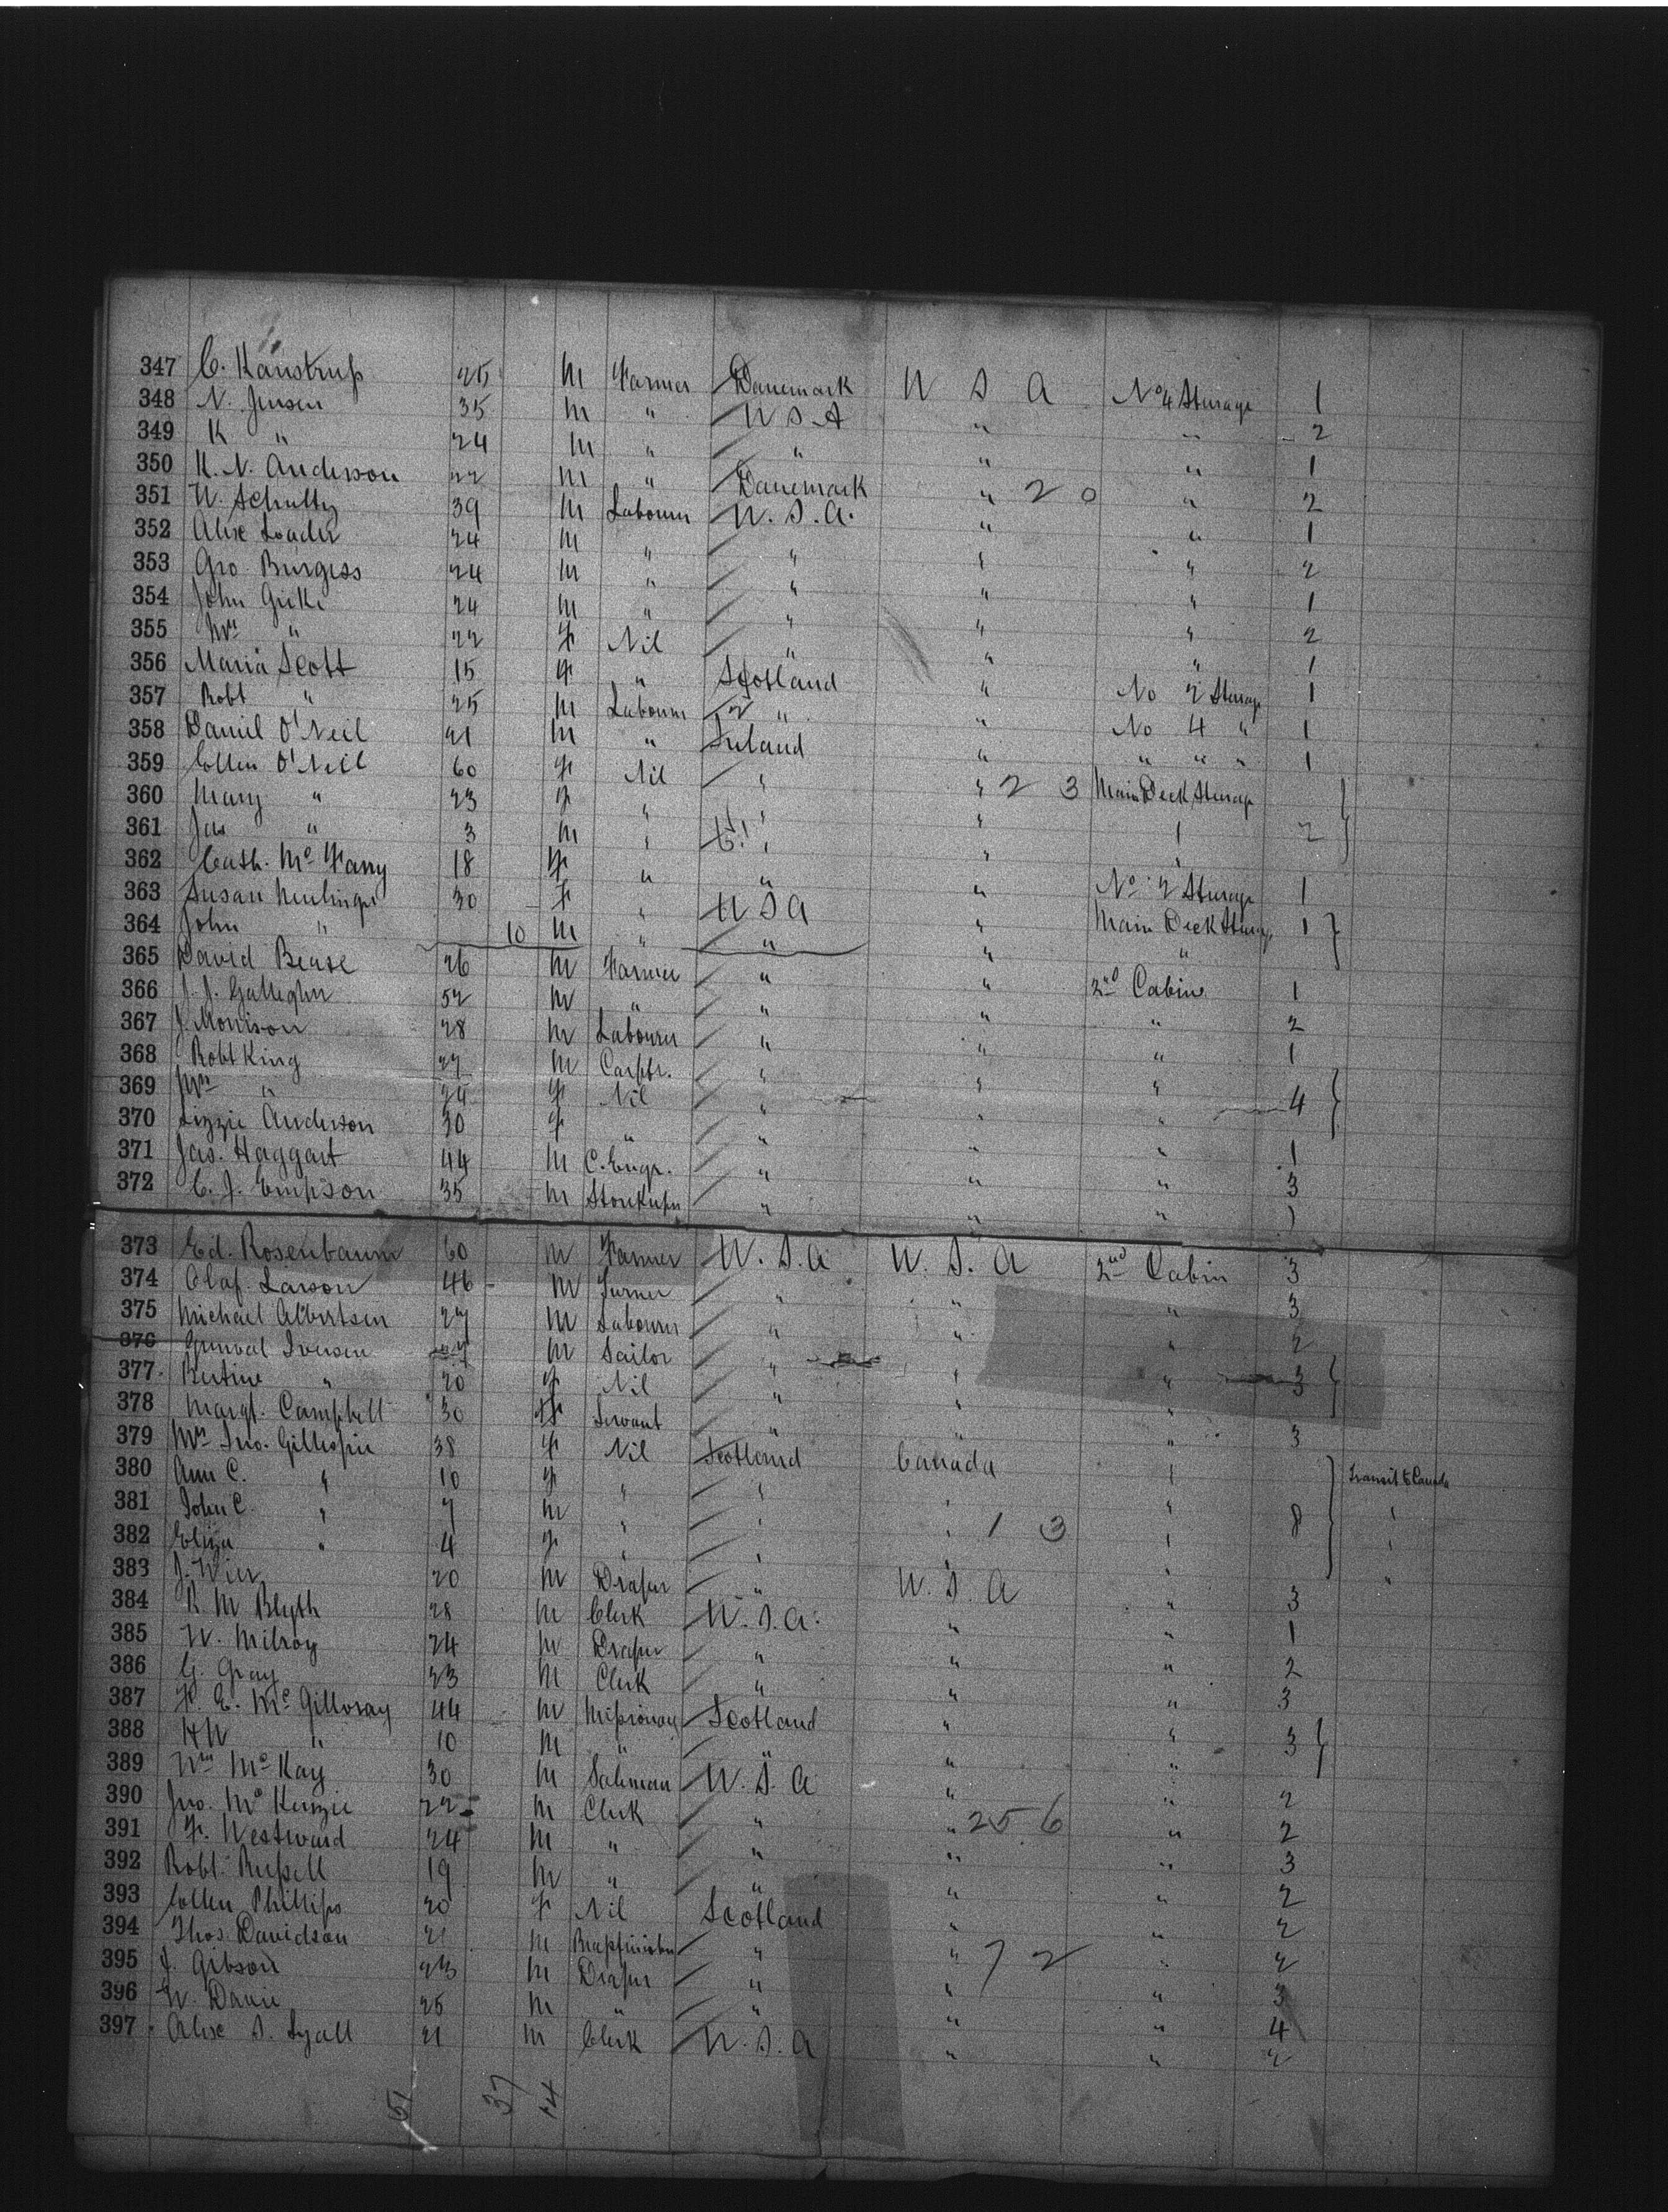 347 C. Kaustrup 25 m Farmer Danemark U S A No 4 Sturage 1
348 N. Jensen 35 m " U S A " " 2
349 K " 24 m " " " " 1
350 K. N. Anderson 22 m " Danemark " 2 0 " 2
351 W. Schultz 39 m Labourer U. S. A. " " 1
352 Alex Loader 24 m " " " " 2
353 Geo Burgess 24 m " " " " 1
354 John Geeke 24 m " " " " 2
355 Mrs " 22 F Nil " " " 1
356 Maria Scott 15 F " Scotland " No 2 Sturage 1
357 Robt " 25 m Labourer " " No 4 " 1
358 Daniel O'Neil 21 m " Ireland " " " " 1
359 Ellen O'Neil 60 F Nil " " 2 3 Main Deck Sturage
360 Mary " 23 F " " " " 2
361 Jas " 3 m " " " "
362 Cath. Mc Garry 18 F " " " No 2 Sturage 1
363 Susan 30 F " U S A " Main Deck Sturage 1
364 John " 10 m " " " "
365 David Bease 26 m Farmer " " 2nd Cabin 1
366 J. J. Gallegher 52 m " " " " 2
367 J. Morrison 28 m Labourer " " " 1
368 Robt King 27 m Carptr. " " "
369 Mrs " 24 F Nil " " " 4
370 Lizzie Anderson 30 F " " " " 1
371 Jas. Haggart 44 m C. Engr. " " " 3
372 C. J. Empson 35 m Storekeper " " " 1
373 Ed. Rosenbaum 60 m Farmer U. S. A U. S. A 2nd Cabin 3
374 Olaf Larson 46 m Turner " " " 3
375 Michael Albertsen 27 m Labourer " " " 2
376 Gunval Iversen 27 m Sailor " " " 3
377 Bertine " 20 F Nil " " "
378 Margt. Campbell 30 F Servant " " " 3
379 Mrs Jno. Gillespie 38 F Nil Scotland Canada " Transit to Canada
380 Ann C. " 10 F " " " " "
381 John C. " 7 m " " " 1 3 " 8 "
382 Eliza " 4 F " " " " "
383 J. Wier 20 m Draper " U. S. A " 3
384 R. M Blyth 28 m Clerk U. S. A. " " 1
385 W. Milroy 24 m Draper " " " 2
386 G. Gray 23 m Clerk " " " 3
387 F. E. Mc Gillvray 44 m Missionary Scotland " " 3
388 H W " 10 m " " " "
389 Wm McKay 30 m Saleman U. S. A " " 2
390 Jno. McKenzie 22 m Clerk " " 25 6 " 2
391 F. Westward 24 m " " " " 3
392 Robt Russell 19 m " " " " 2
393 Ellen Phillips 20 F Nil Scotland " " 2
394 Thos Davidson 21 m Brassfinisher " " 7 2 " 2
395 J. Gibson 23 m Draper " " " 3
396 W. Davie 25 m " " " " 4
397 Alex S. Lyall 21 m Clerk U. S. A " " 2
51 37 14